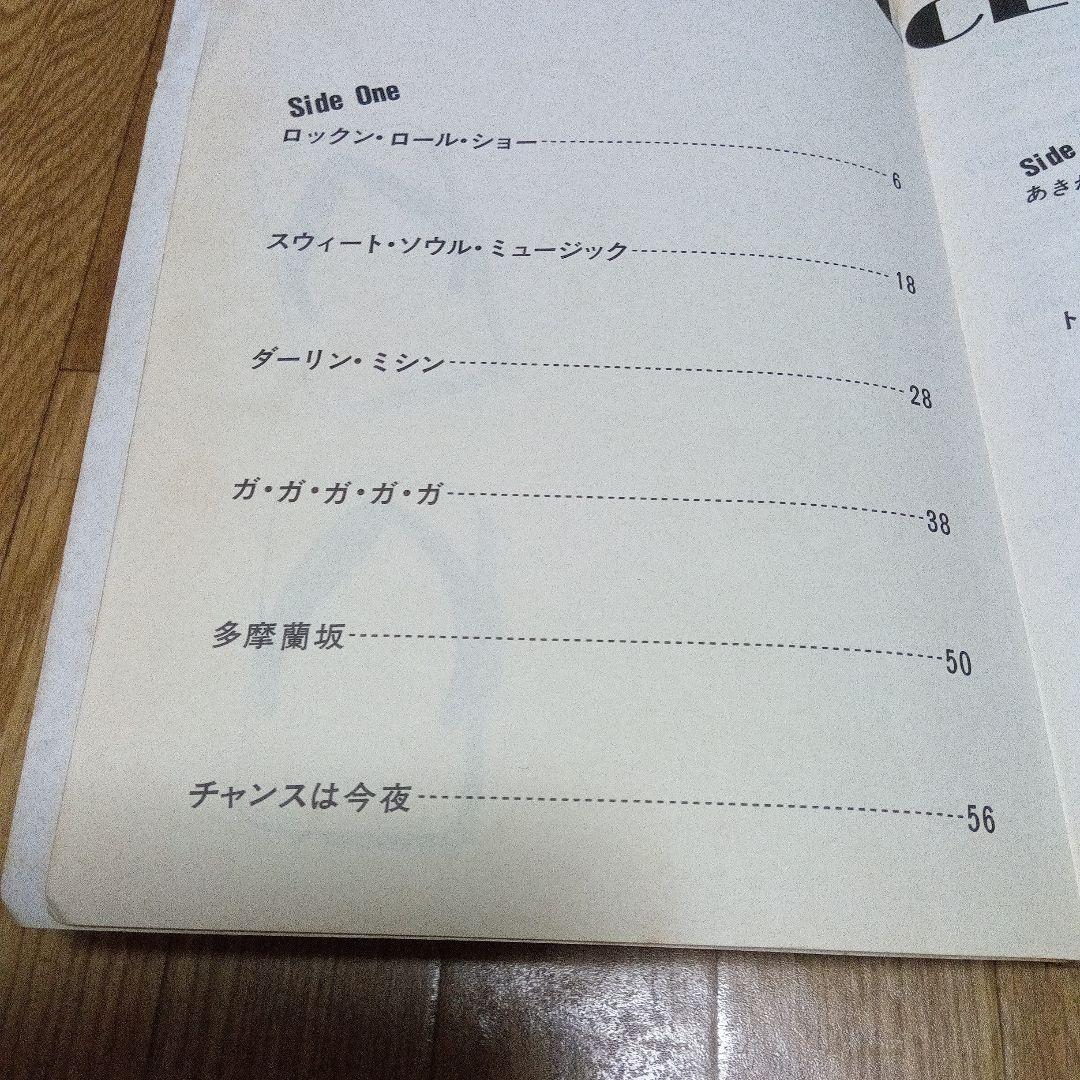 Side One
ロックン・ロール・ショー 6
スウィート・ソウル・ミュージック 18
ダーリン・ミシン 28
ガ・ガ・ガ・ガ・ガ 38
多摩蘭坂 50
チャンスは今夜 56
CE
Side
あき
ト